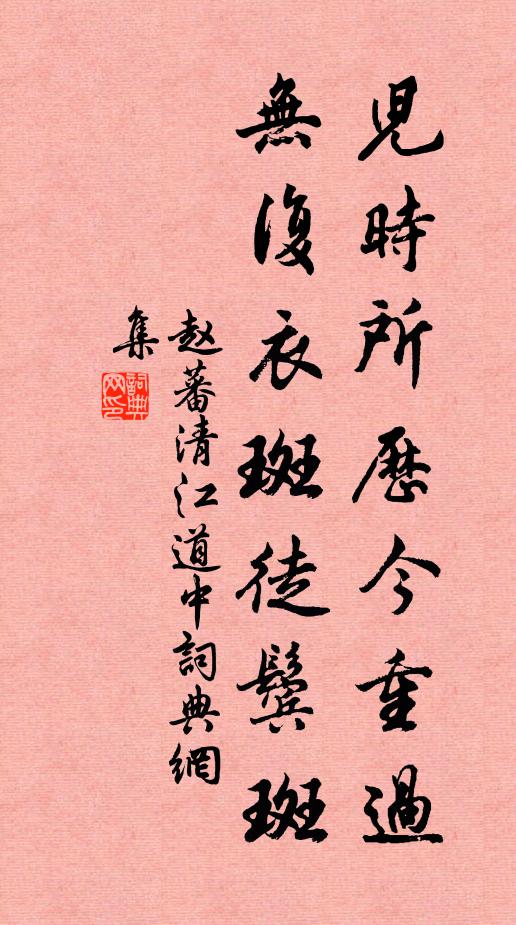 児時所歷今重過
無復衣斑徒鬢斑
赵蕃清江道中詞典網
集
詞典
网印